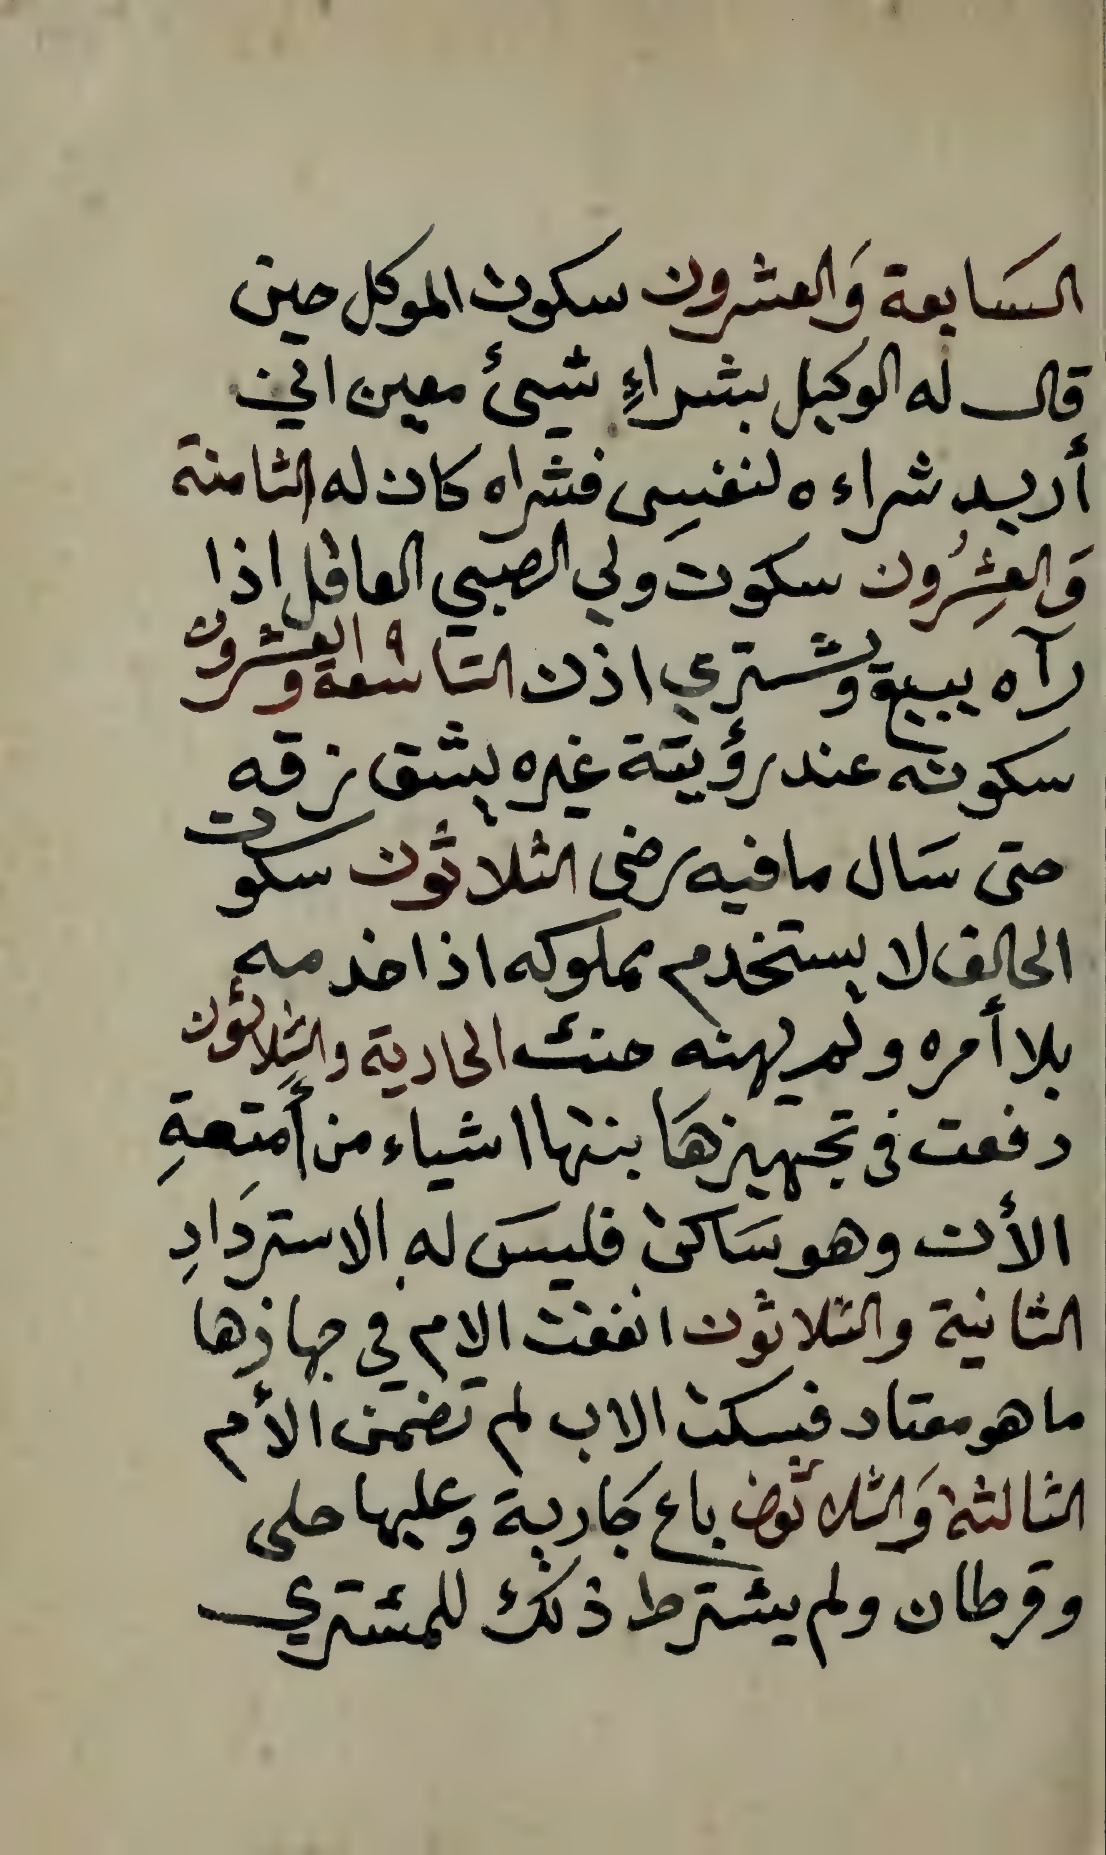 السَابعة وَالعشرون سكوت الموكل حين
قال له الوكيل بشراءِ شيئ معين اني
أريد شراءه لنفسِى فشراه كان له الثامنة
وَالعشِرُون سكوت ولي الصبي العاقل اذا
رآه يبيع ويشتري اذن التاسعة والعشرون
سكوته عند رؤيتة غيره يشق زقه
حتى سَال مافيه رضى الثلاثون سكوت
الحالف لا يستخدم مملوكه اذا خدمه
بلا أمره ولم ينهه حنث الحادية والثلاثون
دفعت فى تجهيزهَا بنتها اشياء من أمتعةِ
الأب وهو سَاكت فليسَ له الاسترَدادِ
الثانية والثلاثون انفقت الام في جهازها
ما هو معتاد فسكت الاب لم تضمن الأم
الثالثة وَالثلاثون باع جارية وعليها حلى
وقرطان ولم يشترط ذلك للمشتري